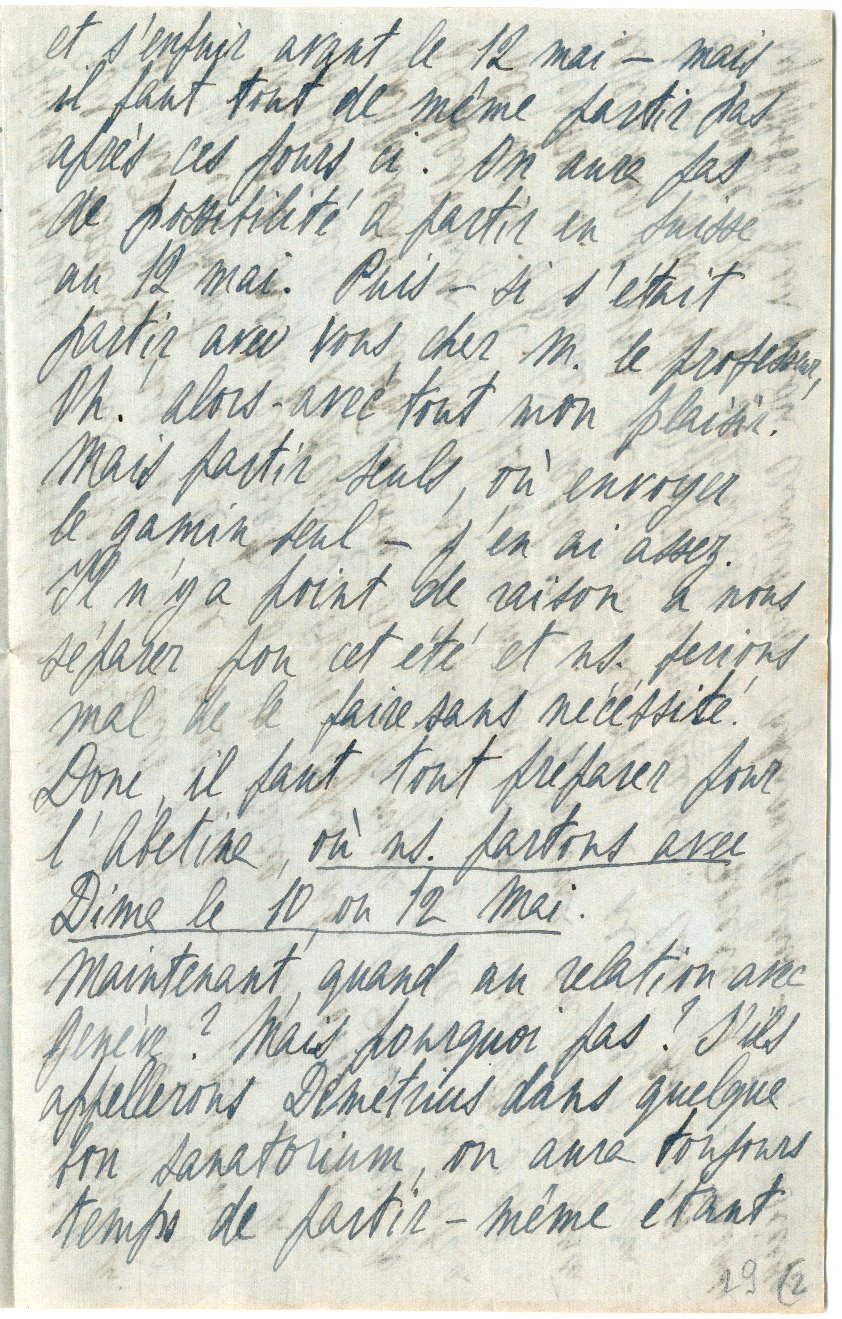 et s'enfuir avant le 12 mai – mais
il faut tout de même partir pas
après ces jours ci. On aura pas
de possibilité a partir en Suisse
au 12 mai. Puis – si s'était
partir avec vous, cher M. le professeur,
Oh. alors - avec tout mon plaisir.
Mais partir seuls, où envoyer
le gamin seul – j'en ai assez.
Il n'y a point de raison a nous
séparer pou cet été et ns. ferions
mal de le faire sans nécéssité.
Donc, il faut tout préparer pour
l'Abetina, où ns. partons avec
Dima le 10 ou 12 Mai.
Maintenant, quand au relation avec
Genève? Mais pourquoi pas? S'ils
appellerons Démétrius dans quelque
bon sanatorium, on aura toujours
temps de partir – même étant
29 (2